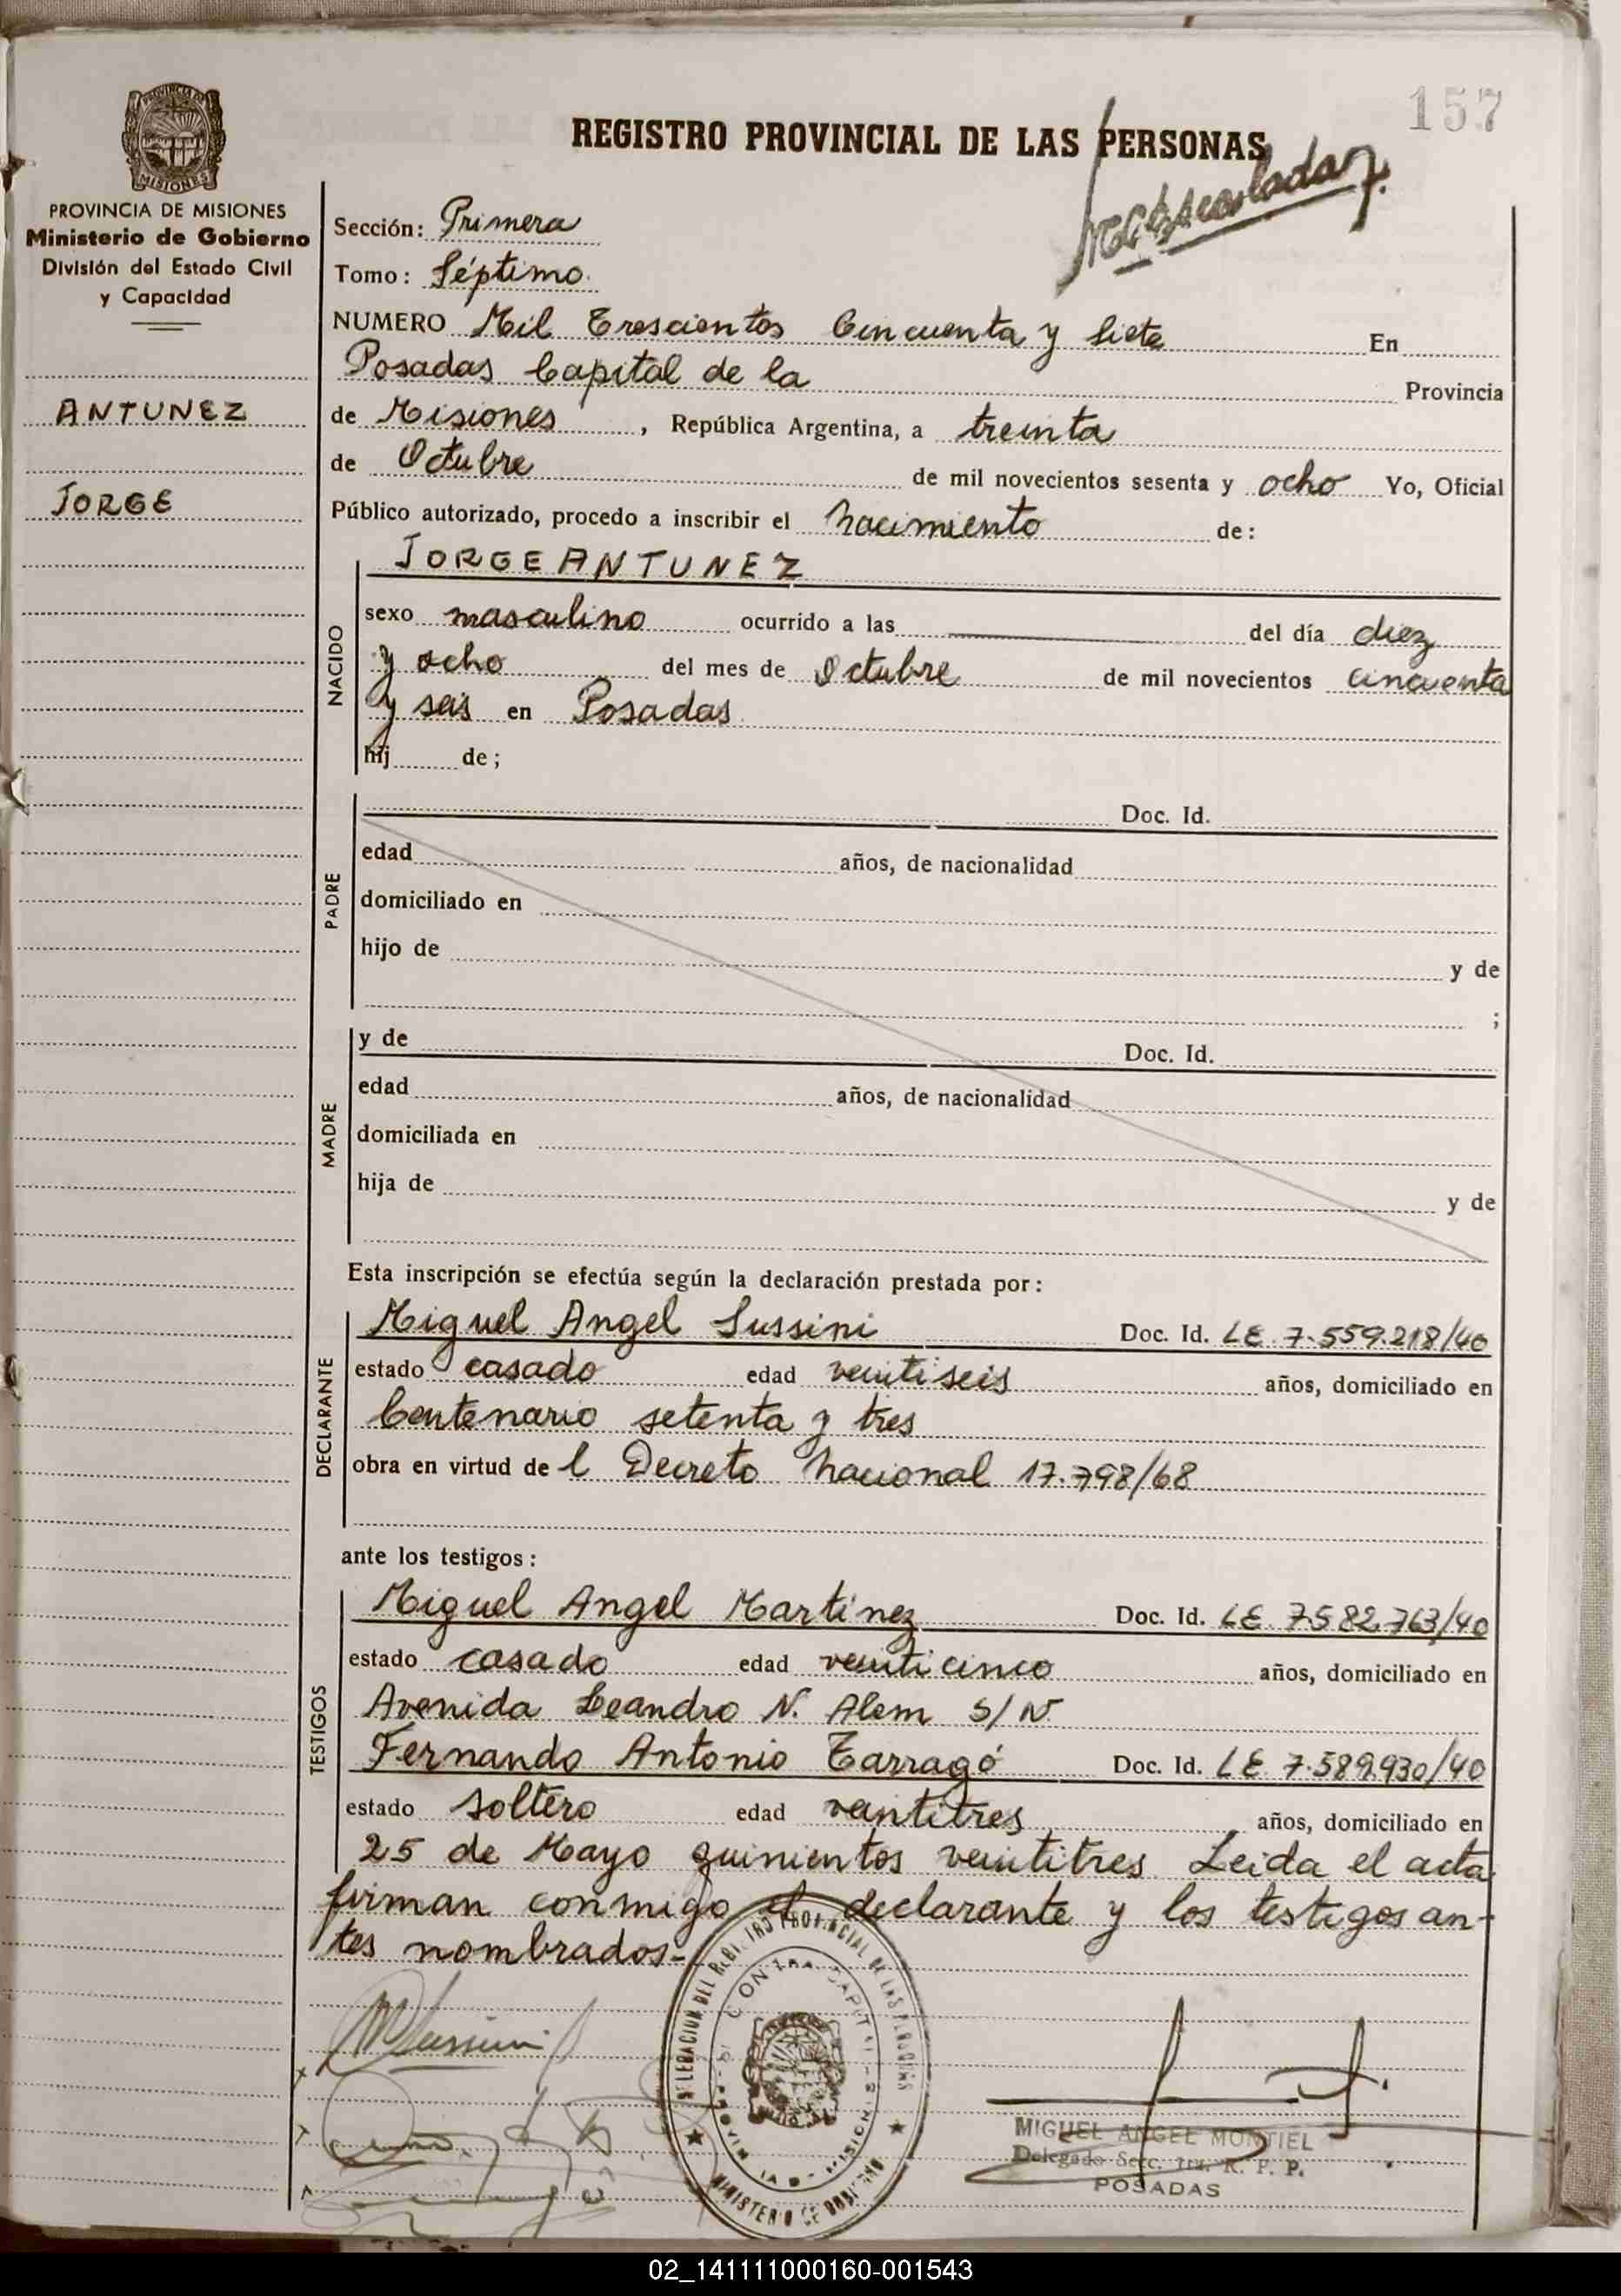 157
REGISTRO PROVINCIAL DE LAS PERSONAS
PROVINCIA DE MISIONES
Ministerio de Gobierno
División del Estado Civil
y Capacidad
ANTUNEZ
JORGE
Sección: Primera
Tomo: Séptimo.
NUMERO Mil Trescientos Cincuenta y Siete En
Posadas Capital de la Provincia
de Misiones, República Argentina, a treinta
de Octubre de mil novecientos sesenta y ocho Yo, Oficial
Público autorizado, procedo a inscribir el Nacimiento de:
JORGE ANTUNEZ
NACIDO
sexo masculino ocurrido a las del día diez
y ocho del mes de Octubre de mil novecientos cincuenta
y seis en Posadas
hij de;
PADRE
Doc. Id.
edad años, de nacionalidad
domiciliado en
hijo de y de
;
MADRE
y de Doc. Id.
edad años, de nacionalidad
domiciliada en
hija de y de
Esta inscripción se efectúa según la declaración prestada por:
DECLARANTE
Miguel Angel Sussini Doc. Id. LE 7.559.218/40
estado casado edad veintiseis años, domiciliado en
Centenario setenta y tres
obra en virtud de l Decreto Nacional 17.798/68
ante los testigos:
TESTIGOS
Miguel Angel Martinez Doc. Id. LE 7582.763/40
estado casado edad veinticinco años, domiciliado en
Avenida Leandro N. Alem S/N
Fernando Antonio Tarragó Doc. Id. LE 7.589.930/40
estado soltero edad veintitres años, domiciliado en
25 de Mayo quinientos veintitres Leida el acta
firman conmigo el declarante y los testigos an-
tes nombrados.-
MIGUEL ANGEL MONTIEL
Delegado Secc. 1ra. R. P. P.
POSADAS
02_141111000160-001543